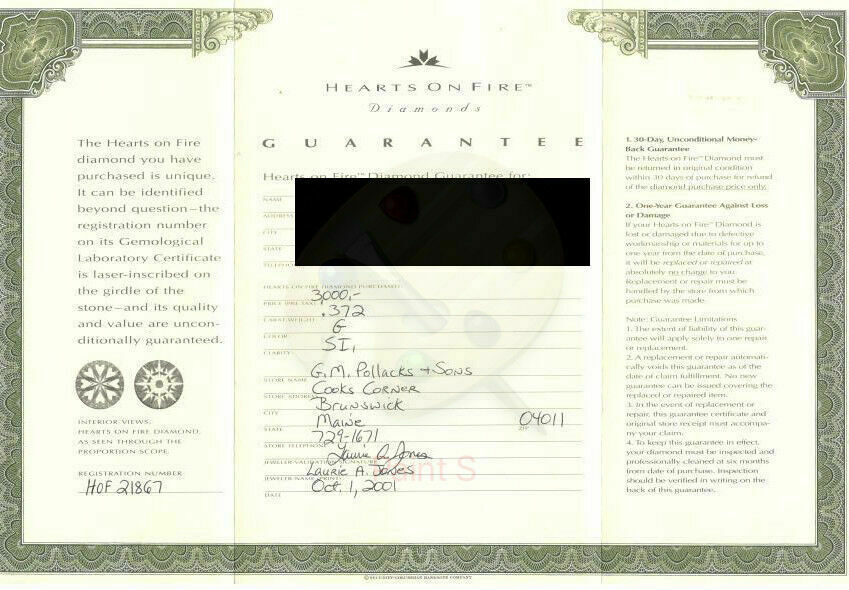 HEARTS ON FIRE™
Diamonds
GUARANTEE
Hearts on Fire™ Diamond Guarantee for:
The Hearts on Fire
diamond you have
purchased is unique.
It can be identified
beyond question—the
registration number
on its Gemological
Laboratory Certificate
is laser-inscribed on
the girdle of the
stone—and its quality
and value are uncon-
ditionally guaranteed.
INTERIOR VIEWS,
HEARTS ON FIRE DIAMOND,
AS SEEN THROUGH THE
PROPORTION SCOPE.
REGISTRATION NUMBER
HOF 21867
NAME
ADDRESS
CITY
STATE
TELEPHONE
HEARTS ON FIRE DIAMOND PURCHASED:
3000,-
PRICE (PRE-TAX)
.372
CARAT WEIGHT
G
COLOR
SI,
CLARITY
G.M. Pollacks + Sons
STORE NAME
Cooks Corner
STORE ADDRESS
Brunswick
CITY
Maine 04011
STATE ZIP
729-1671
STORE TELEPHONE
Laurie A. Jones
JEWELER VALIDATION SIGNATURE
Laurie A. Jones
JEWELER NAME (PRINT)
Oct. 1, 2001
DATE
1. 30-Day, Unconditional Money-
Back Guarantee
The Hearts on Fire™ Diamond must
be returned in original condition
within 30 days of purchase for refund
of the diamond purchase price only.
2. One-Year Guarantee Against Loss
or Damage
If your Hearts on Fire™ Diamond is
lost or damaged due to defective
workmanship or materials for up to
one year from the date of purchase,
it will be replaced or repaired at
absolutely no charge to you.
Replacement or repair must be
handled by the store from which
purchase was made.
Note: Guarantee Limitations
1. The extent of liability of this guar-
antee will apply solely to one repair
or replacement.
2. A replacement or repair automati-
cally voids this guarantee as of the
date of claim fulfillment. No new
guarantee can be issued covering the
replaced or repaired item.
3. In the event of replacement or
repair, this guarantee certificate and
original store receipt must accompa-
ny your claim.
4. To keep this guarantee in effect,
your diamond must be inspected and
professionally cleaned at six months
from date of purchase. Inspection
should be verified in writing on the
back of this guarantee.
© SECURITY-COLUMBIAN BANKNOTE COMPANY